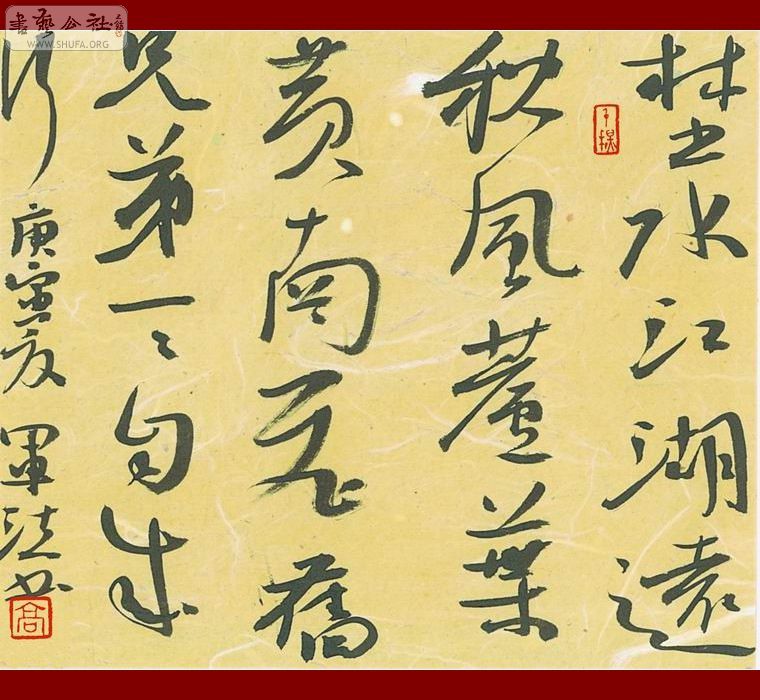 書藝公社
WWW.SHUFA.ORG
楚水江湖遠
秋風蘆葉
黄南飛舊
兄弟一〻自成
行
庚寅夏 軍法书
高